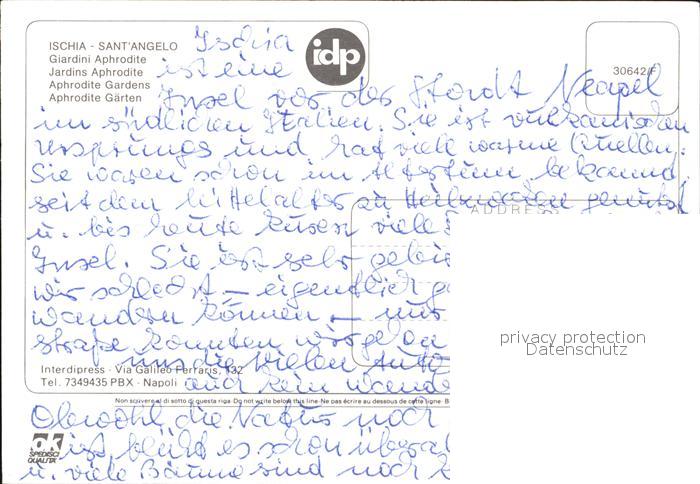 ISCHIA - SANT'ANGELO
Giardini Aphrodite
Jardins Aphrodite
Aphrodite Gardens
Aphrodite Gärten
idp
30642/F
Ischia
ist eine
Insel vor der Stadt Neapel
im südlichen Italien. Sie ist vulkanischen
Ursprungs und hat viele warme Quellen.
Sie waren schon im Altertum bekannt
seit dem Mittelalter zu Heilzwecken genutzt
ADDRESS
u. bis heute kuren viele
Insel. Sie ist sehr gebir
wir schlecht – eigentlich g
wandern können – nur
straße konnten wir gehen
uns die vielen Auto
Interdipress - Via Galileo Ferraris, 132
Tel. 7349435 PBX - Napoli
auch kein wande
Non scrivere al di sotto di questa riga - Do not write below this line - Ne pas écrire au dessous de cette ligne - B
Obwohl die Natur noch
ist, blüht es schon überal
u. viele Bäume sind noch k
ak
SPEDISCI
QUALITA'
privacy protection
Datenschutz